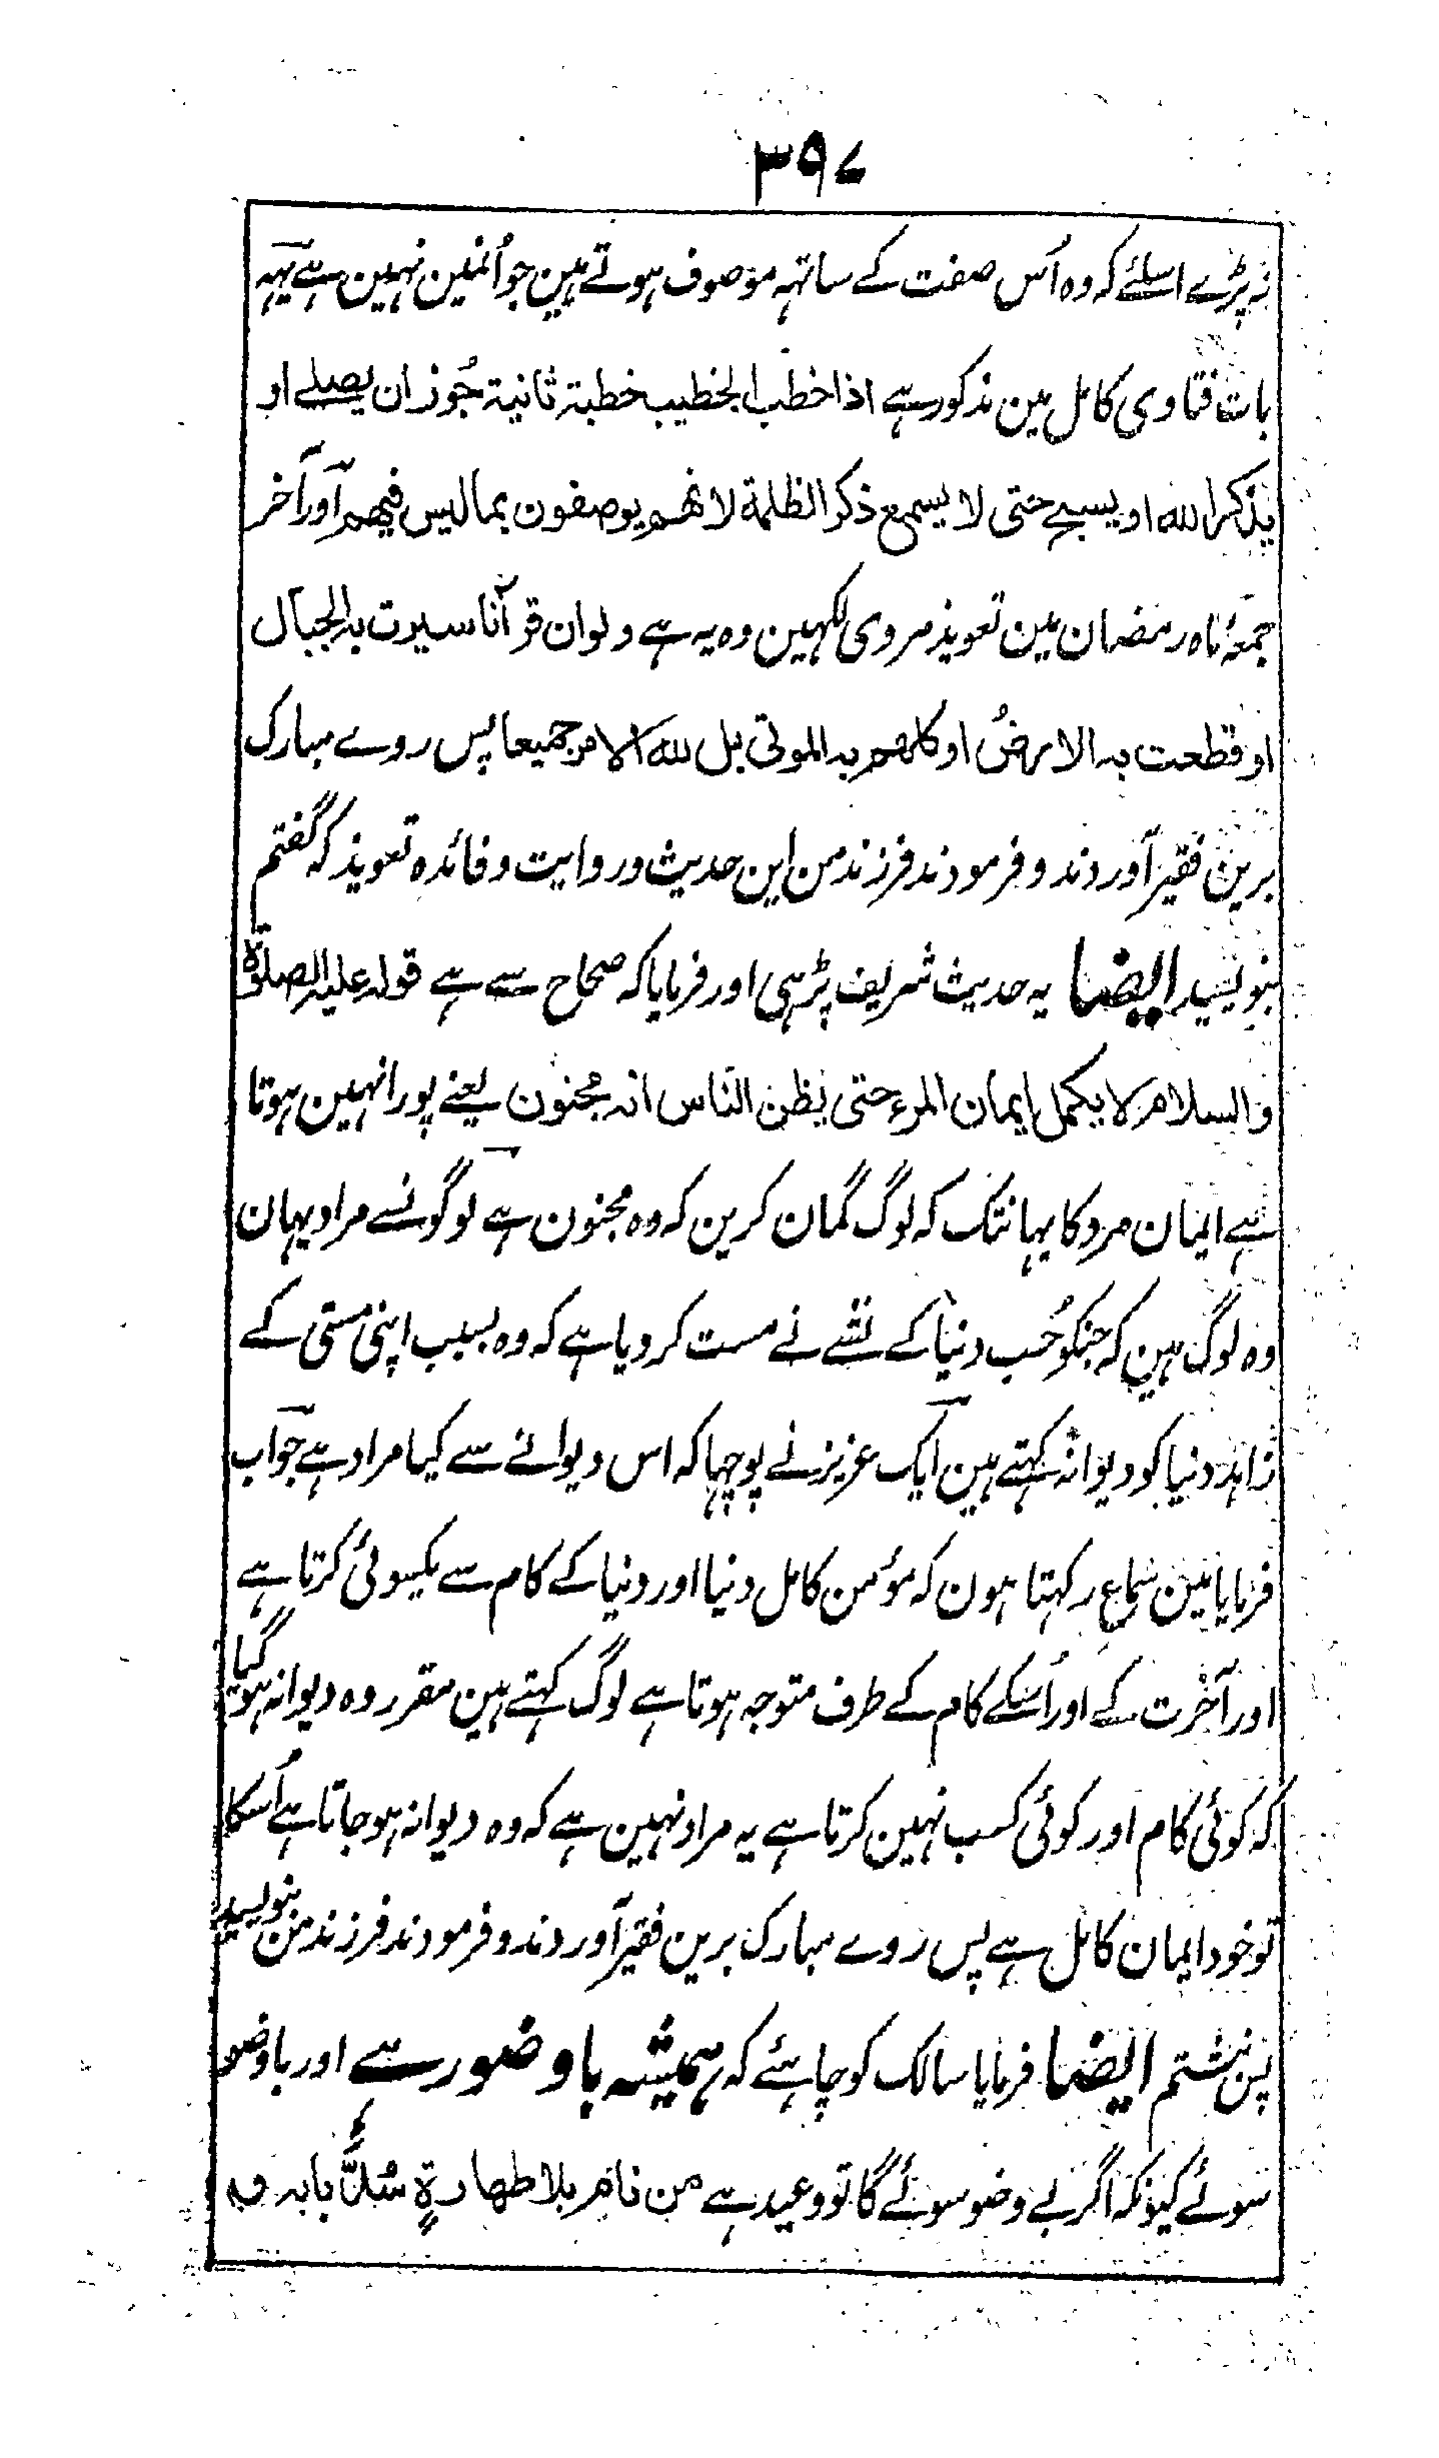 ۳۹۷
نہ پڑے اسلئے کہ وہ اُس صفت کے ساتہہ موصوف ہوتے ہین جو اُنمین نہین ہے یہہ
بات فتاوی کامل مین مذکور ہے اذا خطب الخطیب خطبۃ ثانیۃ جُوز ان یصلے او
یذکر الله او یسبح حتی لا یسمع ذکر الظلمۃ لانھم یوصفون بما لیس فیھم اور آخر
جمعۂ ماہ رمضان مین تعویذ مروی لکہین وہ یہ ہے ولو ان قرآنا سیرت بہ الجبال
او قطعت بہ الارضُ او کلم بہ الموتی بل لله الامر جمیعا پس روے مبارک
برین فقیر آوردند و فرمودند فرزند من این حدیث و روایت و فائدہ تعویذ کہ گفتم
بنویسید ایضا یہ حدیث شریف پڑہی اور فرمایا کہ صحاح سے ہے قولہ علیہ الصلوۃ
والسلام لا یکمل ایمان المرء حتی یظن الناس انہ مجنون یعنے پورا نہین ہوتا
ہے ایمان مرد کا یہانتک کہ لوگ گمان کرین کہ وہ مجنون ہے لوگونسے مراد یہان
وہ لوگ ہین کہ جنکو حُب دنیا کے نشے نے مست کر دیا ہے کہ وہ بسبب اپنی مستی کے
زاہد دنیا کو دیوانہ کہتے ہین ایک عزیز نے پوچہا کہ اس دیوانے سے کیا مراد ہے جواب
فرمایا مین سماع رکہتا ہون کہ مؤمن کامل دنیا اور دنیا کے کام سے یکسوئی کرتا ہے
اور آخرت کے اور اُسکے کام کے طرف متوجہ ہوتا ہے لوگ کہتے ہین مقرر وہ دیوانہ ہو گیا
کہ کوئی کام اور کوئی کسب نہین کرتا ہے یہ مراد نہین ہے کہ وہ دیوانہ ہو جاتا ہے اُسکا
تو خود ایمان کامل ہے پس روے مبارک برین فقیر آوردند و فرمودند فرزند من بنویسید
پس نبشتم ایضا فرمایا سالک کو چاہئے کہ ہمیشہ با وضو رہے اور با وضو
سوئے کیونکہ اگر بے وضو سوئے گا تو وعید ہے من نام بلا طھارۃٍ سُدَّ بابہ